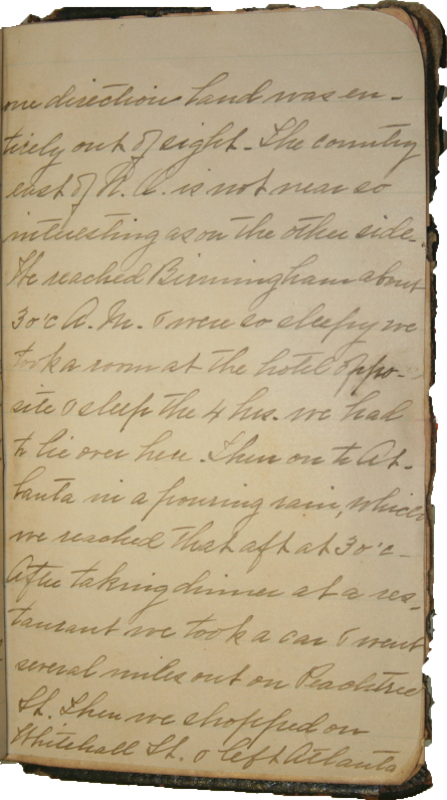 one direction land was en-
tirely out of sight. The country
east of N. O. is not near so
interesting as on the other side.
We reached Birmingham about
3 o'c A. M. & were so sleepy we
took a room at the hotel oppo-
site & sleep the 4 hrs. we had
to lie over here. Then on to At-
lanta in a pouring rain, which
we reached that aft at 3 o'c-
After taking dinner at a res-
taurant we took a car & went
several miles out on Peachtree
St. Then we shopped on
Whitehall St. & left Atlanta